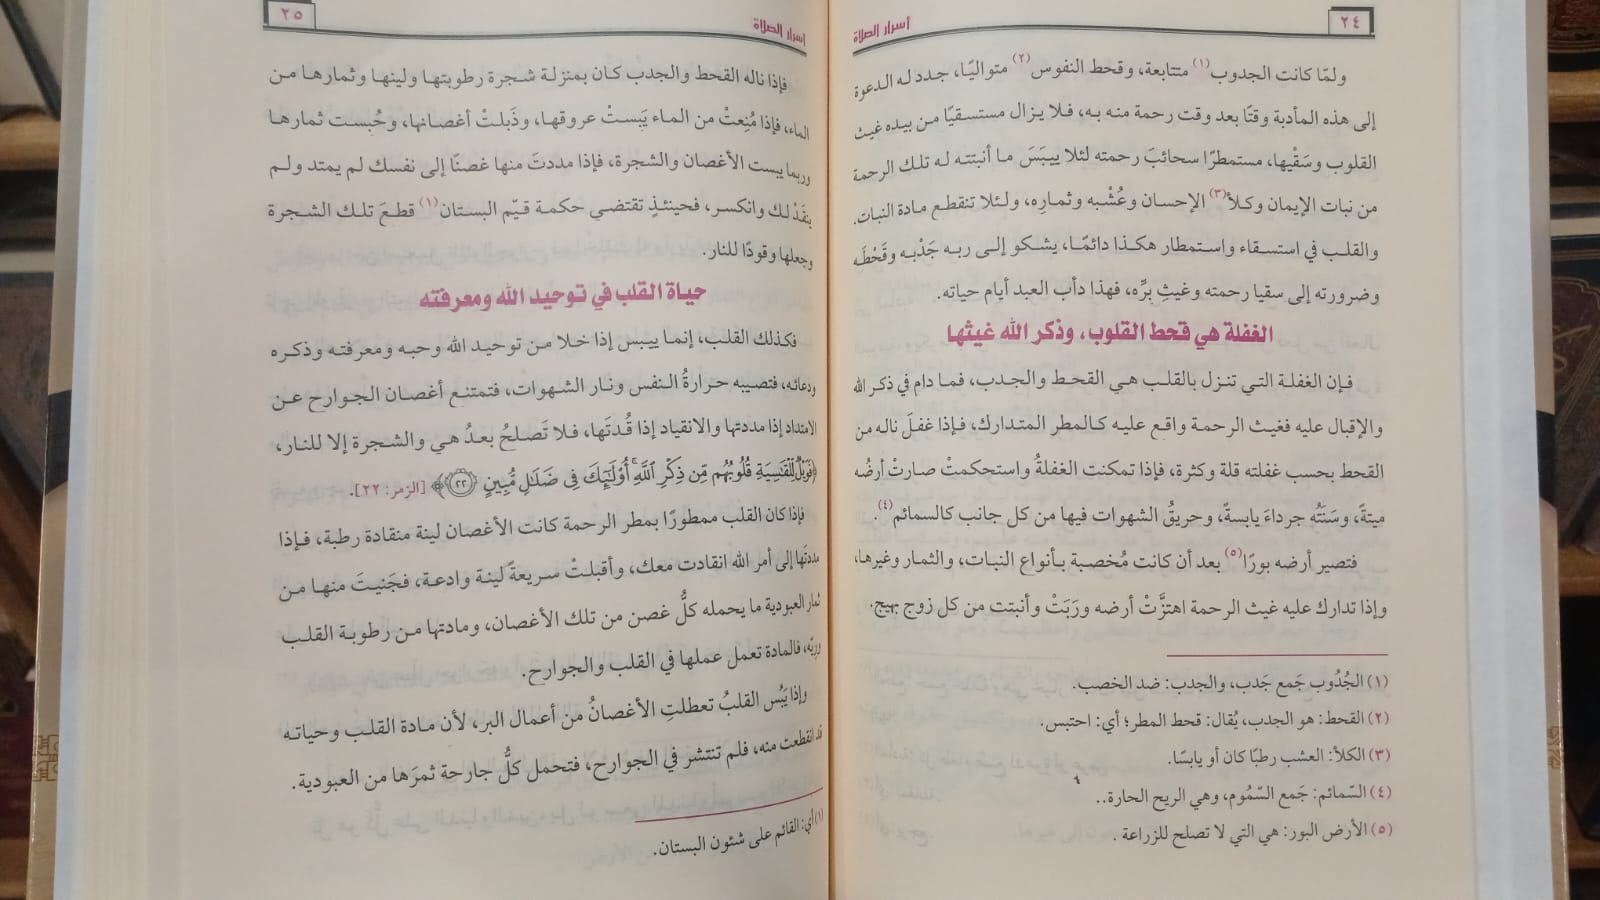 ٢٤
أسرار الصلاة
ولمّا كانت الجدوب(١) متتابعة، وقحط النفوس(٢) متواليًا، جدد له الدعوة
إلى هذه المأدبة وقتًا بعد وقت رحمة منه به، فلا يزال مستسقيًا من بيده غيث
القلوب وسَقْيها، مستمطرًا سحائبَ رحمته لئلا ييبَسَ ما أنبتته له تلك الرحمة
من نبات الإيمان وكلأ(٣) الإحسان وعُشْبه وثمارِه، ولئلا تنقطع مادة النبات.
والقلب في استسقاء واستمطار هكذا دائمًا، يشكو إلى ربه جَدْبه وقَحْطَه
وضرورته إلى سقيا رحمته وغيثِ برِّه، فهذا دأب العبد أيام حياته.
الغفلة هي قحط القلوب، وذكر الله غيثها
فإن الغفلة التي تنزل بالقلب هي القحط والجدب، فما دام في ذكر الله
والإقبال عليه فغيث الرحمة واقع عليه كالمطر المتدارك، فإذا غفلَ ناله من
القحط بحسب غفلته قلة وكثرة، فإذا تمكنت الغفلةُ واستحكمتْ صارتْ أرضُه
ميتةً، وسَنَتُه جرداءَ يابسةً، وحريقُ الشهوات فيها من كل جانب كالسمائم(٤).
فتصير أرضه بورًا(٥) بعد أن كانت مُخصبة بأنواع النبات، والثمار وغيرها،
وإذا تدارك عليه غيث الرحمة اهتزَّتْ أرضه ورَبَتْ وأنبتت من كل زوج بهيج.
(١) الجُدُوب جَمع جَدب، والجدب: ضد الخصب.
(٢) القحط: هو الجدب، يُقال: قحط المطر؛ أي: احتبس.
(٣) الكلأ: العشب رطبًا كان أو يابسًا.
(٤) السّمائم: جَمع السّمُوم، وهي الريح الحارة..
(٥) الأرض البور: هي التي لا تصلح للزراعة .
٢٥
أسرار الصلاة
فإذا ناله القحط والجدب كان بمنزلة شجرة رطوبتها ولينها وثمارها من
الماء، فإذا مُنِعتْ من الماء يَبستْ عروقها، وذَبلتْ أغصانها، وحُبست ثمارها
وربما يبست الأغصان والشجرة، فإذا مددتَ منها غصنًا إلى نفسك لم يمتد ولم
ينقَدْ لك وانكسر، فحينئذٍ تقتضي حكمة قيّم البستان(١) قطعَ تلك الشجرة
وجعلها وقودًا للنار.
حياة القلب في توحيد الله ومعرفته
فكذلك القلب، إنما ييبس إذا خلا من توحيد الله وحبه ومعرفته وذكره
ودعائه، فتصيبه حرارةُ النفس ونار الشهوات، فتمتنع أغصان الجوارح عن
الامتداد إذا مددتها والانقياد إذا قُدتَها، فلا تَصلحُ بعدُ هي والشجرة إلا للنار،
﴿فَوَيْلٌ لِّلْقَاسِيَةِ قُلُوبُهُم مِّن ذِكْرِ اللَّهِ ۚ أُولَٰئِكَ فِي ضَلَالٍ مُّبِينٍ ٢٢﴾ [الزمر: ٢٢].
فإذا كان القلب ممطورًا بمطر الرحمة كانت الأغصان لينة منقادة رطبة، فإذا
مددتَها إلى أمر الله انقادت معك، وأقبلتْ سريعةً لينة وادعة، فجَنيتَ منها من
ثمار العبودية ما يحمله كلُّ غصن من تلك الأغصان، ومادتها من رطوبة القلب
وريّه، فالمادة تعمل عملها في القلب والجوارح.
وإذا يَبُس القلبُ تعطلتِ الأغصانُ من أعمال البر، لأن مادة القلب وحياته
قد انقطعت منه، فلم تنتشر في الجوارح، فتحمل كلُّ جارحة ثمرَها من العبودية.
(١) أي: القائم على شئون البستان.